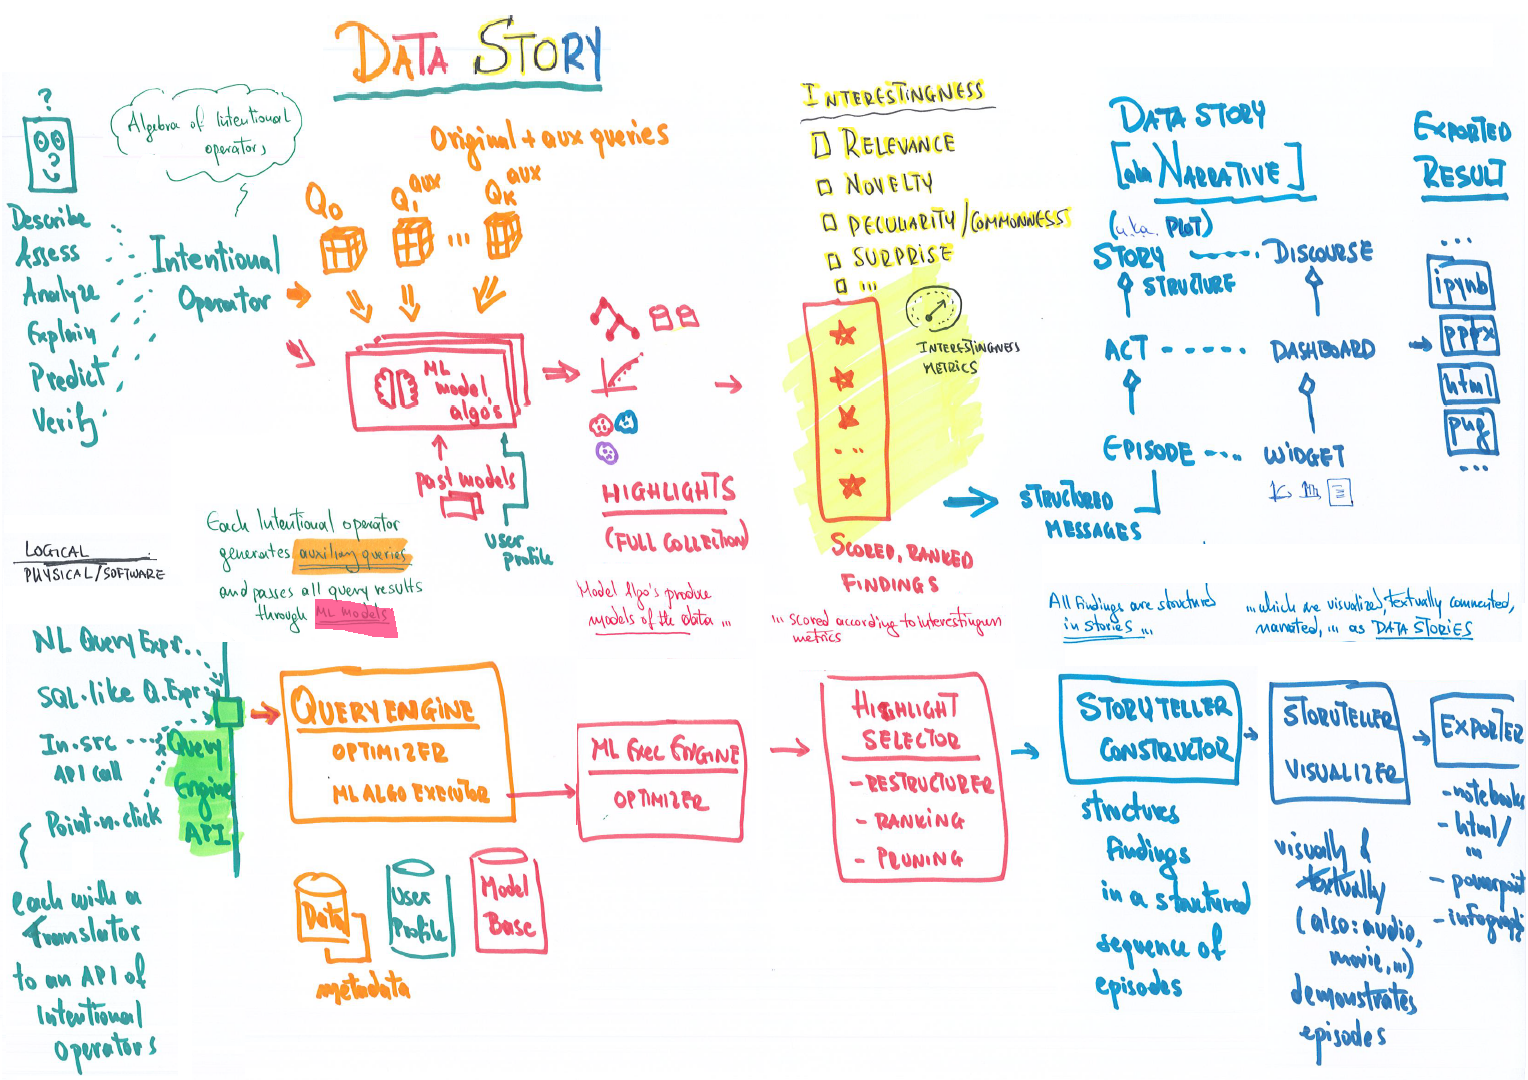 DATA STORY
?
Algebra of Intentional
operators
Describe
Assess
Analyze
Explain
Predict
Verify
Intentional
Operator
Original + aux queries
Q0
Q1 aux
...
QK aux
ML
model
algo's
past models
user
profile
HIGHLIGHTS
(FULL COLLECTION)
INTERESTINGNESS
RELEVANCE
NOVELTY
PECULIARITY/COMMONNESS
SURPRISE
...
INTERESTINGNESS
METRICS
...
SCORED, RANKED
FINDINGS
STRUCTURED
MESSAGES
DATA STORY
[aka NARRATIVE]
(a.k.a. PLOT)
STORY
STRUCTURE
DISCOURSE
ACT
DASHBOARD
EPISODE
WIDGET
EXPORTED
RESULT
...
ipynb
pptx
html
png
...
Each Intentional operator
generates auxiliary queries
and passes all query results
through ML models
Model Algo's produce
models of the data ...
... scored according to interestingness
metrics
All findings are structured
in stories ...
...which are visualized, textually commented,
narrated, ... as DATA STORIES
LOGICAL
PHYSICAL/SOFTWARE
NL Query Expr..
SQL-like Q.Expr
In-src
API call
Point-n-click
Query
Engine
API
each with a
Translator
to an API of
Intentional
operators
QUERY ENGINE
OPTIMIZER
ML ALGO EXECUTOR
Data
metadata
User
Profile
Model
Base
ML EXEC ENGINE
OPTIMIZER
HIGHLIGHT
SELECTOR
- RESTRUCTURER
- RANKING
- PRUNING
STORYTELLER
CONSTRUCTOR
structures
findings
in a structured
sequence of
episodes
STORYTELLER
VISUALIZER
visually &
textually
(also: audio,
movie, ...)
demonstrates
episodes
EXPORTER
- notebooks
- html/
...
- powerpoint
- infographi